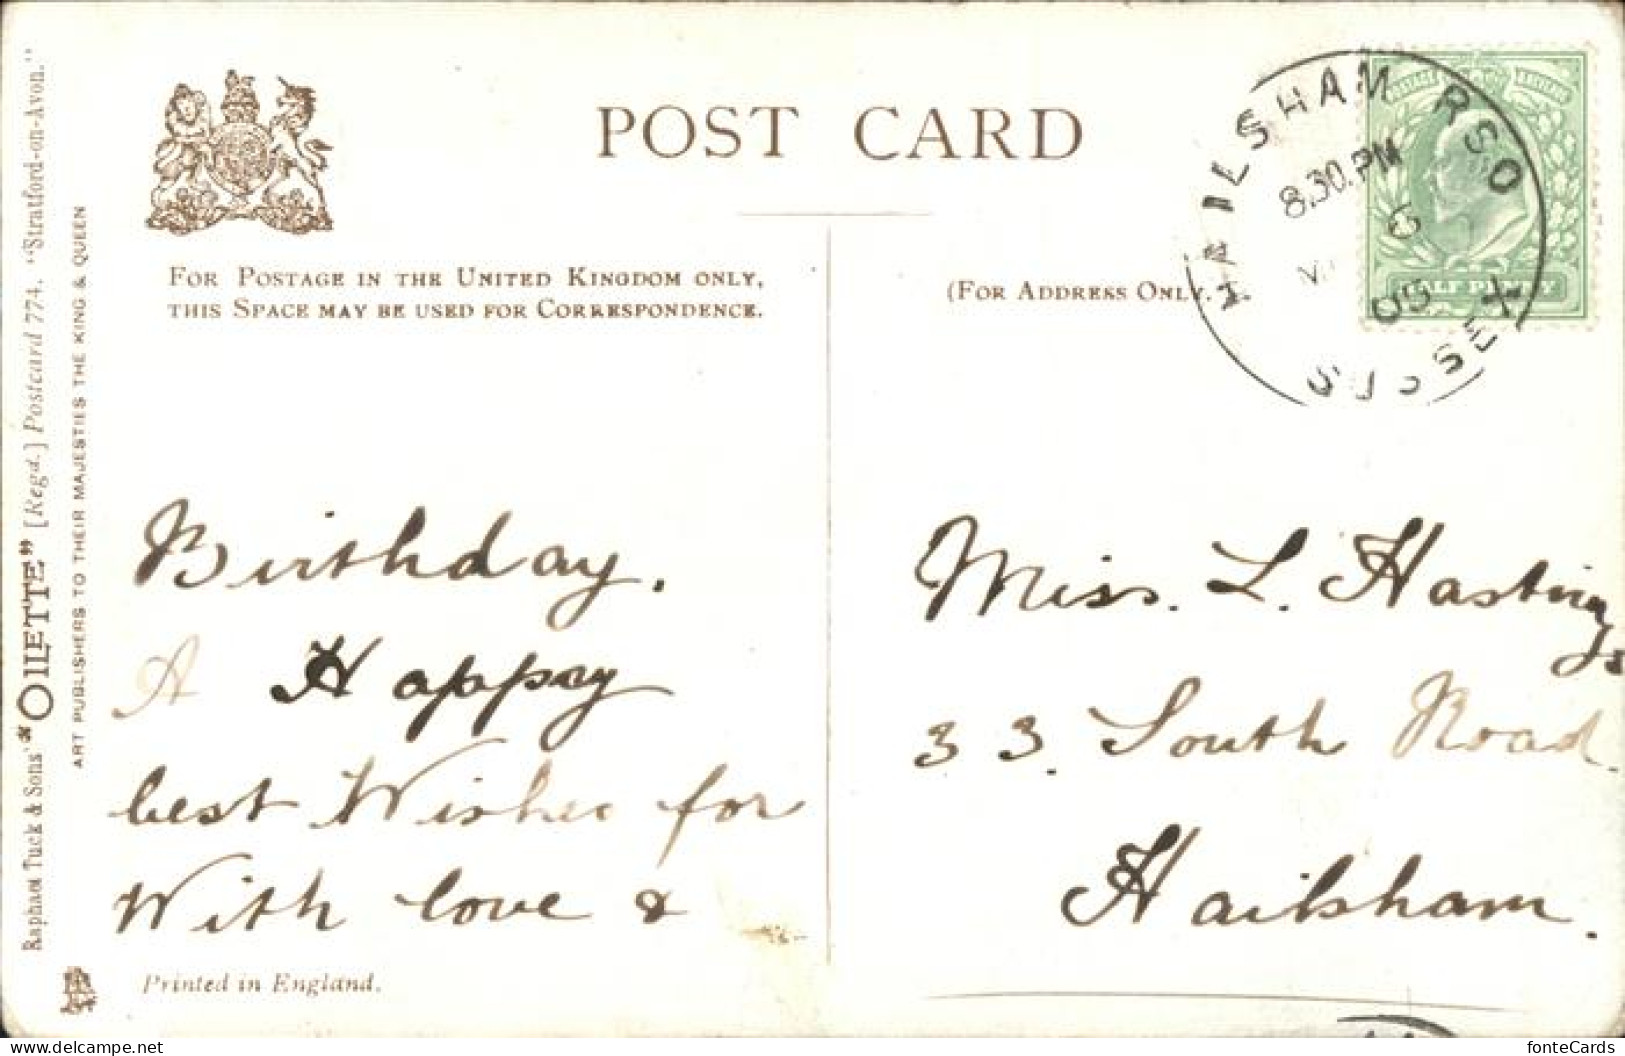 POST CARD
FOR POSTAGE IN THE UNITED KINGDOM ONLY,
THIS SPACE MAY BE USED FOR CORRESPONDENCE.
(FOR ADDRESS ONLY.
HAILSHAM RSO
8.30.PM
6
09
SUSSEX
HALF PENNY
Birthday.
A Happy
best Wishes for
With love &
Miss. L. Hastings
33. South Road.
Hailsham.
Printed in England.
Raphael Tuck & Sons' "OILETTE" [Regd.] Postcard 774. "Stratford-on-Avon."
ART PUBLISHERS TO THEIR MAJESTIES THE KING & QUEEN
delcampe.net
fonteCards